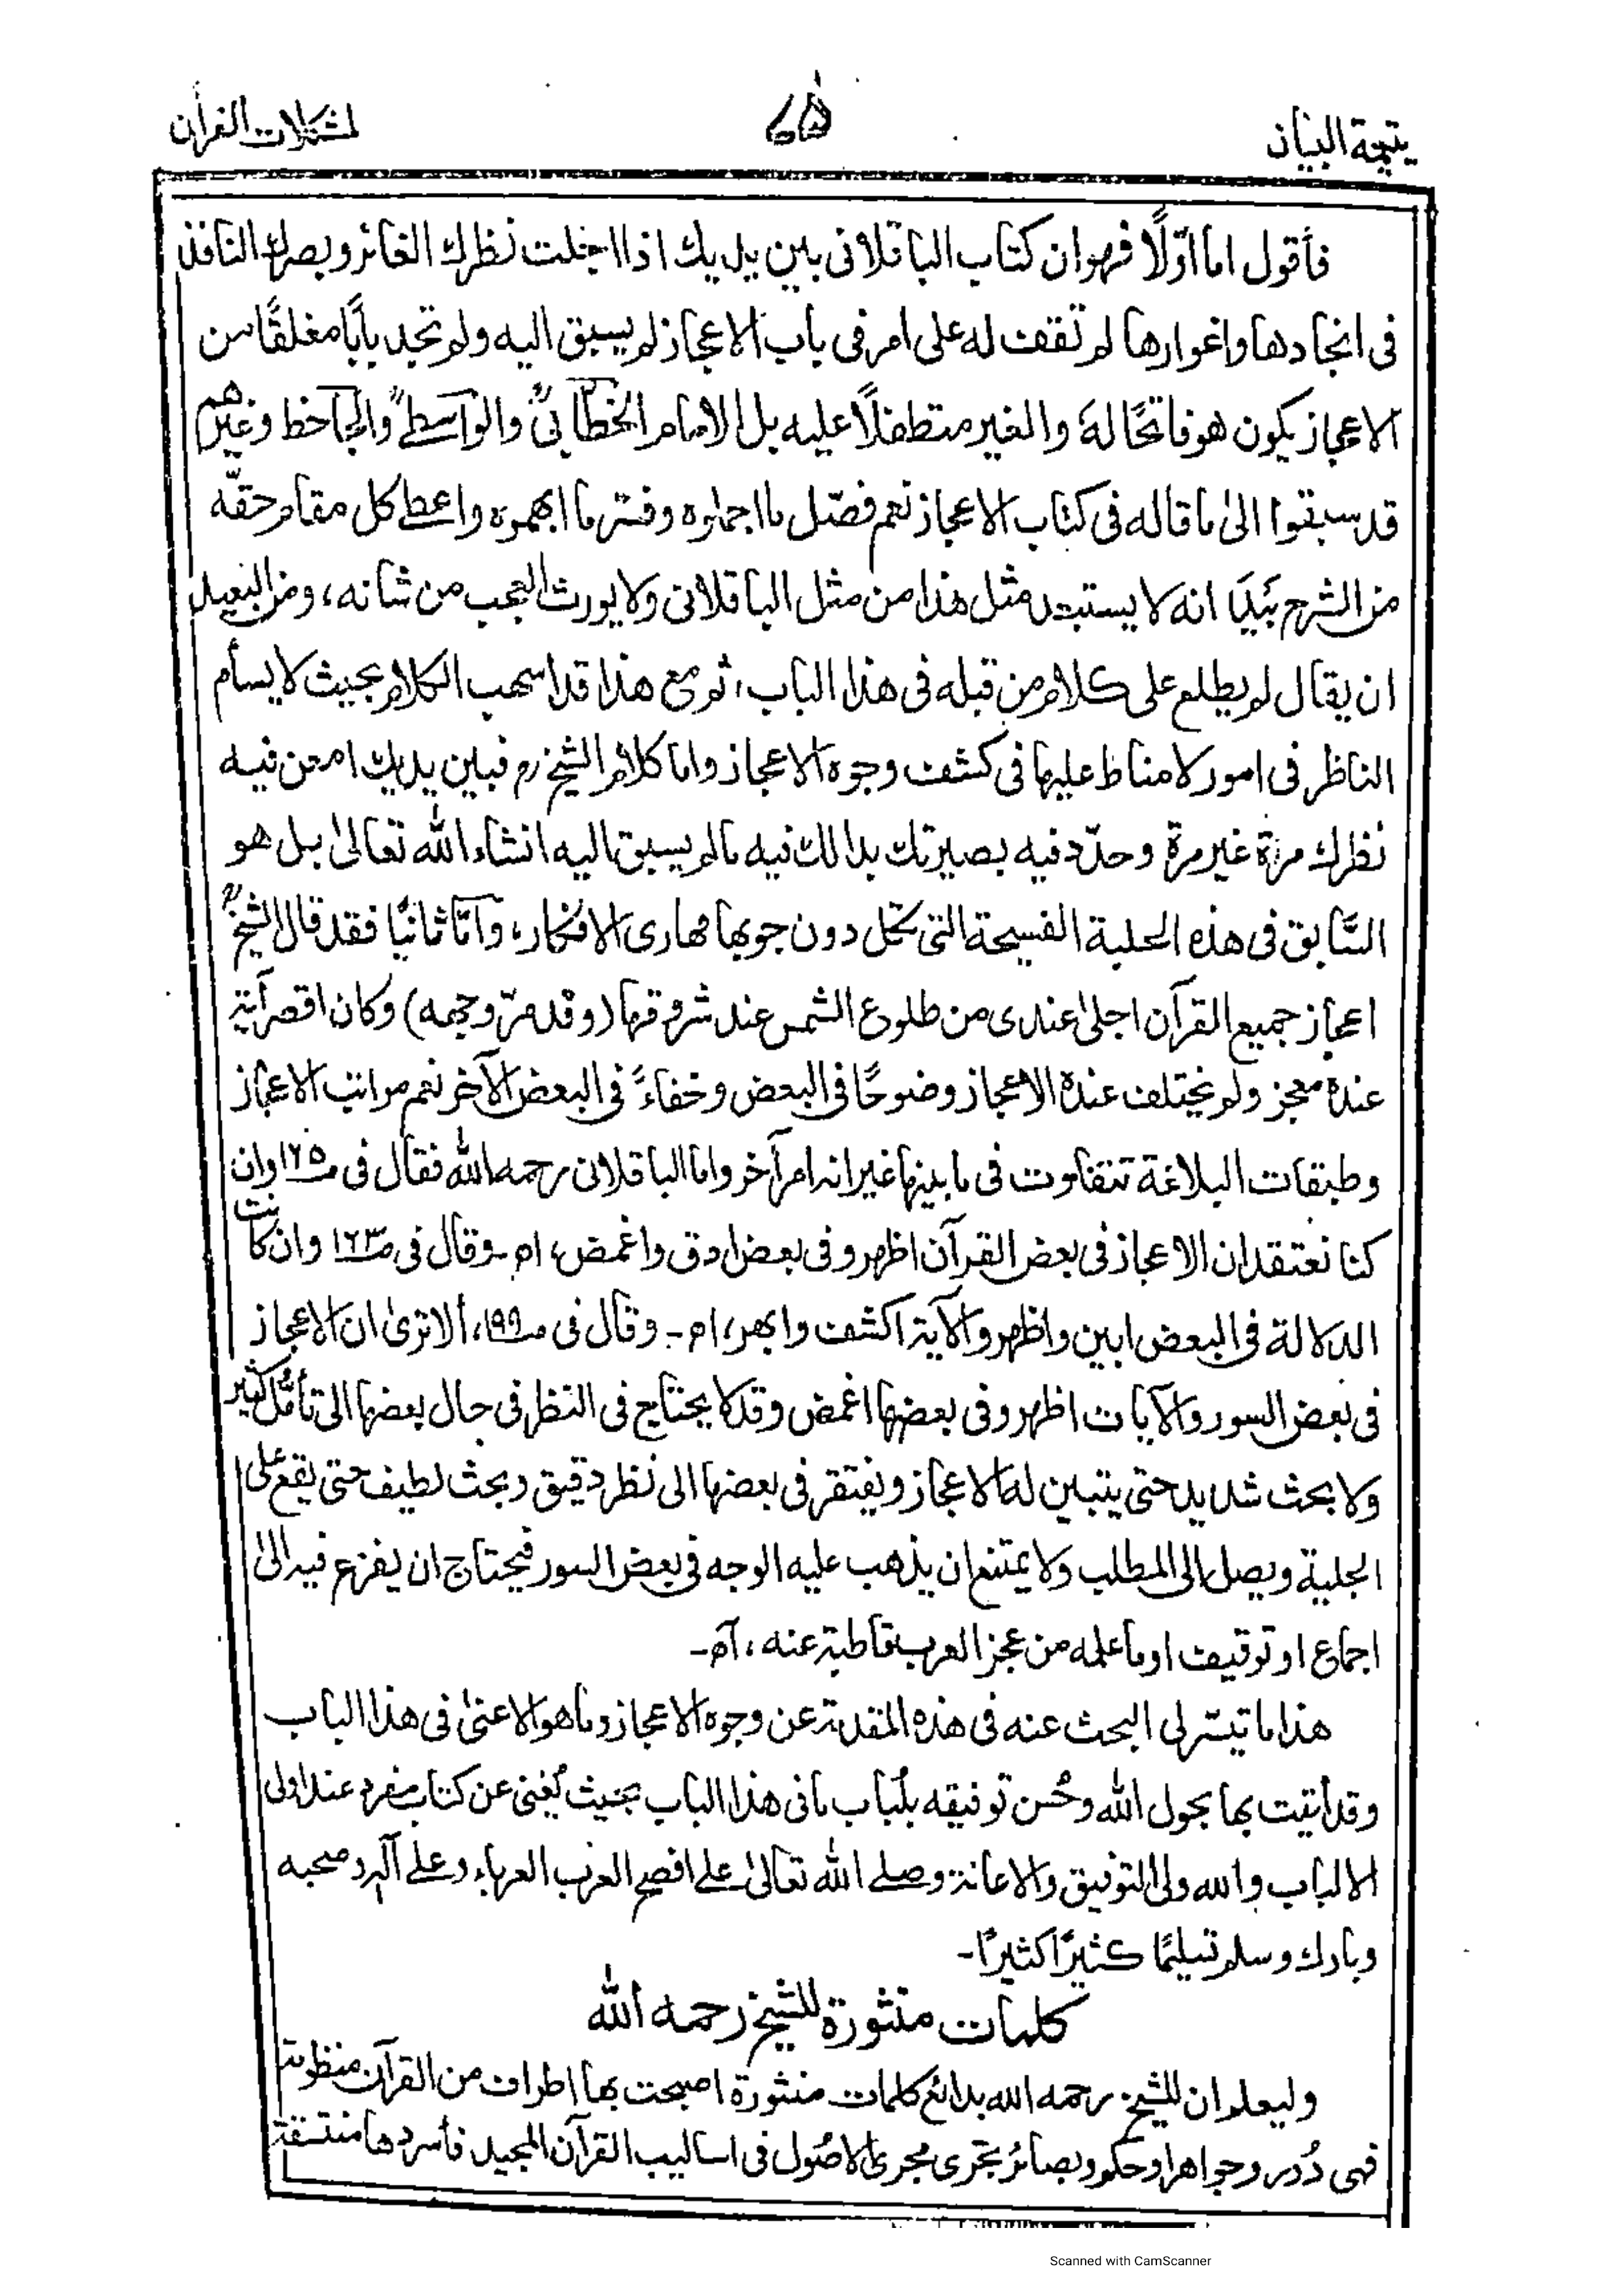 يتيمة البيان
٧٥
لمشكلات القرآن
فأقول اما اوّلًا فهو ان كتاب الباقلانى بين يديك اذا اجلت نظرك الغائر وبصرك النافذ
فى انجادها واغوارها لم تقف له على امر فى باب الاعجاز لم يسبق اليه ولم تجد بابًا مغلقًا من
الاعجاز يكون هو فاتحًا له والغير متطفلًا عليه بل الامام الخطابىؒ والواسطىؒ والجاحظ وغيرهم
قد سبقوا الى ما قاله فى كتاب الاعجاز نعم فصّل ما اجملوه وفسّر ما ابهموه واعطى كل مقام حقّه
من الشرح بَيدَ انه لا يستبعد مثل هذا من مثل الباقلانى ولا يورث العجب من شانه، ومن البعيد
ان يقال لم يطلع على كلام من قبله فى هذا الباب، ثم مع هذا قد اسهب الكلام بحيث لا يسأم
الناظر فى امور لا مناط عليها فى كشف وجوه الاعجاز واما كلام الشيخ رح فبين يديك امعن فيه
نظرك مرة غير مرة وحدّد فيه بصيرتك بدا لك فيه ما لم يسبق اليه انشاء الله تعالىٰ بل هو
السَّابق فى هذه الحلبة الفسيحة التى تكل دون جوبها مهارى الافكار، وآمّا ثانيًا فقد قال الشيخؒ
اعجاز جميع القرآن اجلىٰ عندى من طلوع الشمس عند شروقها (وقد مرّ وجهه) وكان اقصر آية
عنده معجز ولم يختلف عنده الاعجاز وضوحًا فى البعض وخفاءً فى البعض الآخر نعم مراتب الاعجاز
وطبقات البلاغة تتفاوت فى ما بينها غير انه امر آخر واما الباقلانى رحمه الله فقال فى صـ١٢٥ وان
كنا نعتقد ان الاعجاز فى بعض القرآن اظهر وفى بعض ادق واغمض، اه‍ـ وقال فى صـ١٢٣ وان كانت
الدلالة فى البعض ابين واظهر والآية اكشف وابهر، اه‍ـ وقال فى صـ١٩٩، ألا ترىٰ ان الاعجاز
فى بعض السور والآيات اظهر وفى بعضها اغمض وقد لا يحتاج فى النظر فى حال بعضها الى تأمُّل كثير
ولا بحث شديد حتى يتبين له الاعجاز ويفتقر فى بعضها الى نظر دقيق وبحث لطيف حتى يقع على
الجلية ويصل الى المطلب ولا يمتنع ان يذهب عليه الوجه فى بعض السور فيحتاج ان يفزع فيه الىٰ
اجماع او توقيف او ما علمه من عجز العرب قاطبة عنه، آه‍ـ
هذا ما تيسّر لى البحث عنه فى هذه المقدمة عن وجوه الاعجاز وما هو الاعنىٰ فى هذا الباب
وقد أتيت بها بحول الله وحُسن توفيقه بلُباب ما فى هذا الباب بحيث يُغنى عن كتاب مفرد عند اولى
الالباب والله ولى التوفيق والاعانة وصلى الله تعالىٰ على افصح العرب العرباء وعلى آله وصحبه
وبارك وسلم تسليمًا كثيرًا كثيرًا-
كلمات منثورة للشيخ رحمه الله
وليعلم ان للشيخ رحمه الله بدائع كلمات منثورة اصبحت بها اطراف من القرآن منظومة
فهى دُرر وجواهر او حكم وبصائر تجرى مجرى الاصُول فى اساليب القرآن المجيد فأسردها منتسقة
Scanned with CamScanner